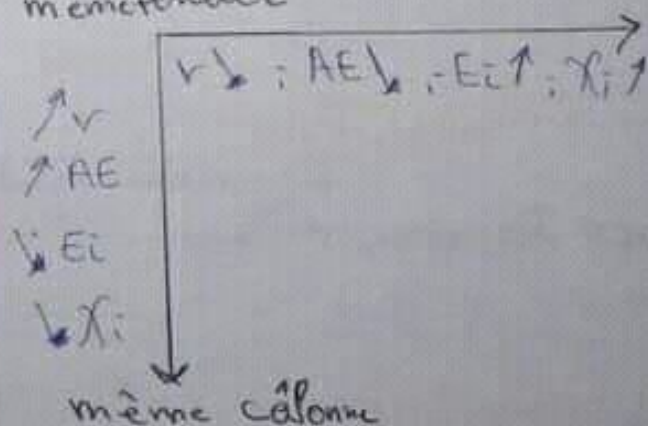 r↘ ; AE↘ ; Ei↑ ; χi↑
↗r
↗AE
↘Ei
↘χi
même câlonne